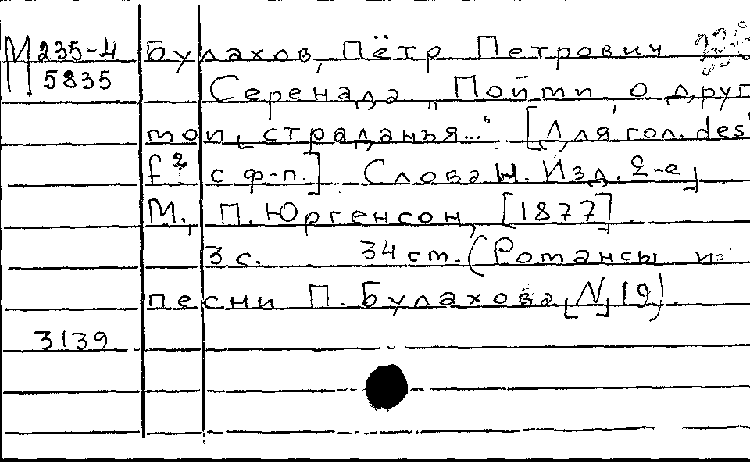 М 235-4 Булахов, Пётр Петрович
5835 Серенада „Пойми, о друг,
мои страданья..." [Для гол. des'
f² с ф-п.] Слова Н. Изд. 2-е
М., П. Юргенсон, [1877].
3 с. 34 см. (Романсы и
песни П. Булахова [N] 19).
3139